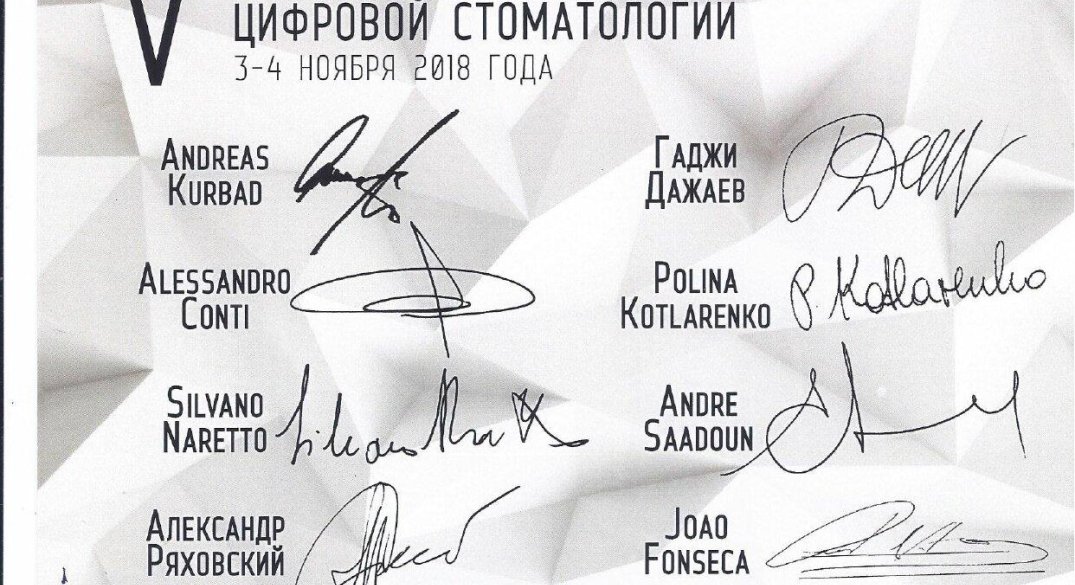 V
ЦИФРОВОЙ СТОМАТОЛОГИИ
3-4 НОЯБРЯ 2018 ГОДА
ANDREAS
KURBAD
ALESSANDRO
CONTI
SILVANO
NARETTO
АЛЕКСАНДР
РЯХОВСКИЙ
ГАДЖИ
ДАЖАЕВ
POLINA
KOTLARENKO
P. Kotlarenko
ANDRE
SAADOUN
JOAO
FONSECA